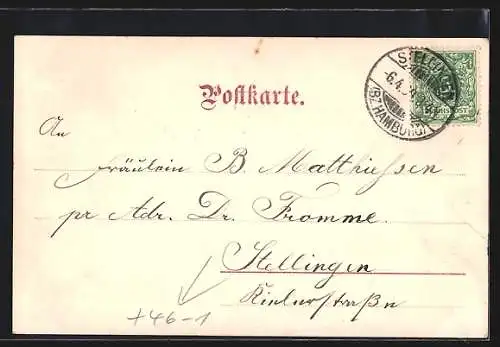 Postkarte.
STELLINGEN
6.4.
(BZ. HAMBURG)
REICHSPOST
An
Fräulein B. Matthiessen
pr Adr. Dr. Fromme.
Stellingen
Kielerstraße
+46-1